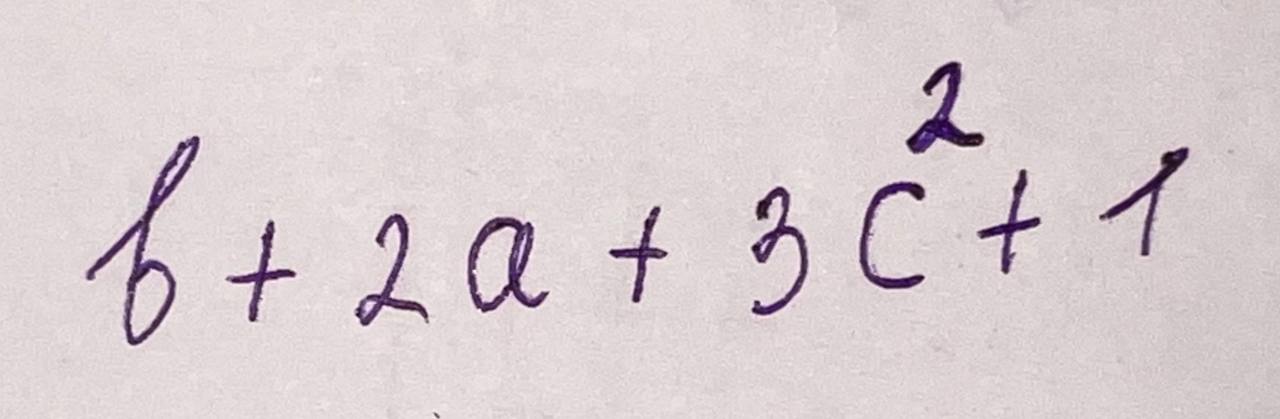 b + 2a + 3c² + 1